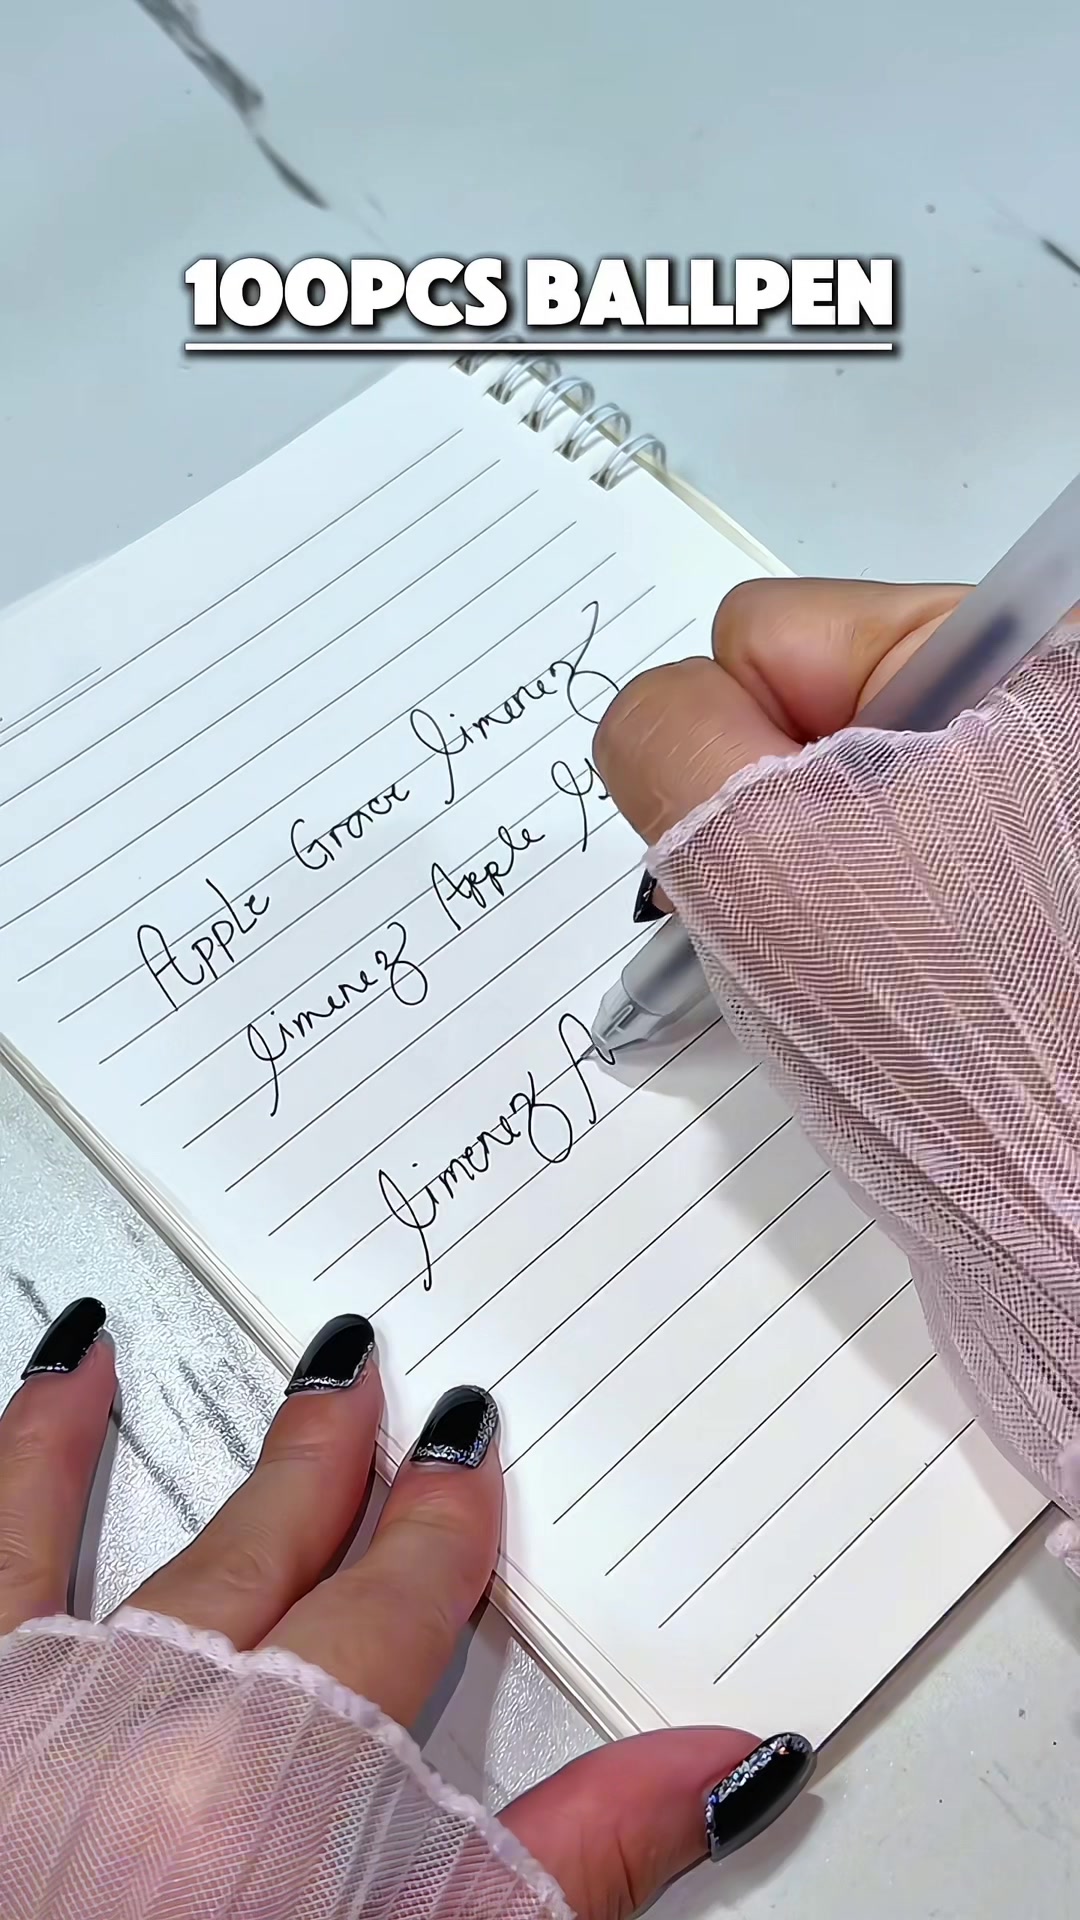 100PCS BALLPEN
Apple Grace Jimenez
Jimenez Apple
Jimenez A